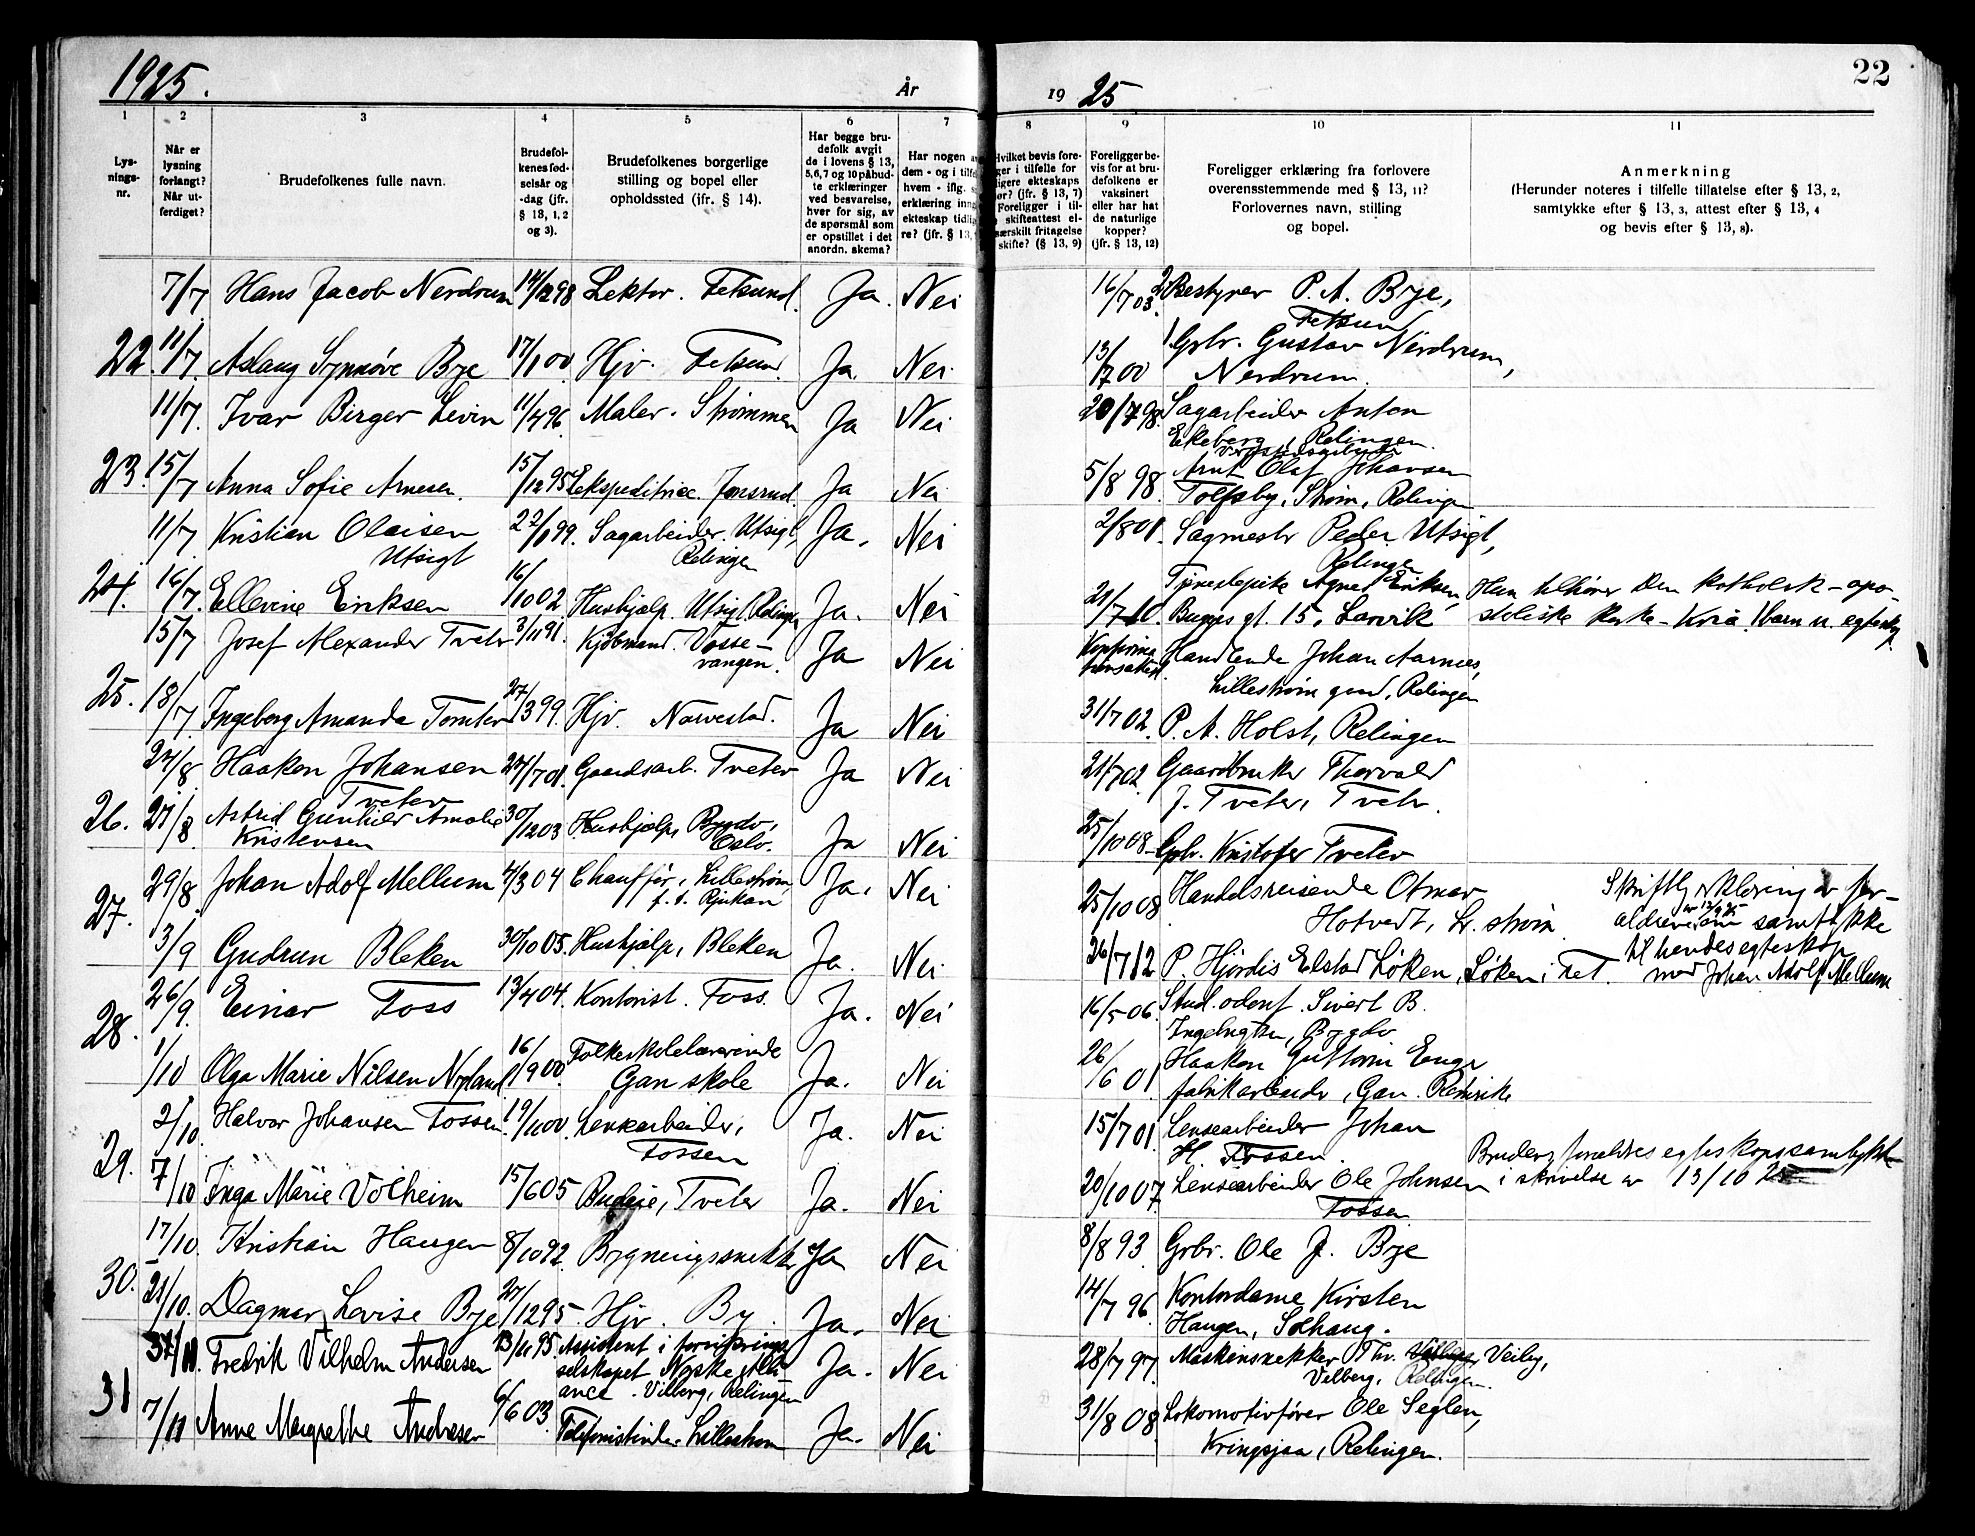 1925.
År
19 25
22
1
2
3
4
5
6
7
8
9
10
11
Lys-
nings-
nr.
Når er
lysning
forlangt?
Når ut-
ferdiget?
Brudefolkenes fulle navn.
Brudefol-
kenes fød-
selsår og
-dag (jfr.
§ 13, 1, 2
og 3).
Brudefolkenes borgerlige
stilling og bopel eller
opholdssted (jfr. § 14).
Har begge bru-
defolk avgit
de i lovens § 13,
5, 6, 7 og 10 påbud-
te erklæringer
ved besvarelse,
hver for sig, av
de spørsmål som
er opstillet i det
anordn. skema?
Har nogen av
dem - og i tilfe
hvem - iflg. s
erklæring inng
ekteskap tidlig
re? (jfr. § 13,
Hvilket bevis fore-
ger i tilfelle for
ligere ekteskaps
or? (jfr. § 13, 7)
Foreligger i til-
skifteattest el-
særskilt fritagelse
skifte? (§ 13, 9)
Foreligger be-
vis for at bru-
defolkene er
vaksinert
eller har hat
de naturlige
kopper?
(jfr. § 13, 12)
Foreligger erklæring fra forlovere
overensstemmende med § 13, 11?
Forlovernes navn, stilling
og bopel.
Anmerkning
(Herunder noteres i tilfelle tillatelse efter § 13, 2,
samtykke efter § 13, 3, attest efter § 13, 4
og bevis efter § 13, 8).
7/7 Hans Jacob Nerdrum 14/12 98 Lektor. Fetsund. Ja. Nei 16/7 03. Bestyrer P. A. Bye,
Fetsund
22. 11/7 Aslaug Synnøve Bye 17/1 00. Hjv. Fetsund. Ja Nei. 13/7 00 Gbr. Gustav Nerdrum,
Nerdrum.
11/7. Ivar Birger Levin 11/4 96. Maler. Strømmen Ja Nei 20/7 98. Sagarbeider Anton
Ekeberg, Relingen.
23. 15/7 Anna Sofie Arnesen. 15/12 95 Ekspeditrice. Ja Nei 5/8 98. Arnt Olaf Johansen
Tolfsby, Strøm, Relingen
11/7 Kristian Olaisen 22/1 99. Sagarbeider. Utsigt, Ja. Nei 2/8 01. Sagmestr Peder Utsigt,
Utsigt Relingen Relingen
24. 16/7. Ellevine Eriksen 16/10 02 Hushjælp. Utsigt, Relingen Ja. Nei 21/7 10. Tjenestepike Agnes Eriksen, Hun tilhører den katholsk-apo-
Bugges gt. 15, Larvik stoliske kirke - Kria. 1 barn u. egtesk.
15/7 Josef Alexander Tveter 3/11 91. Kjøbmand. Vosse- Ja Nei Konfirma- Handlende Johan Aarnes,
vangen. Lillestrøm gaard, Relingen
25. 18/7. Ingeborg Amanda Tomter 27/3 99. Hjv. Navestad. Ja Nei 31/7 02. P. A. Holst, Relingen
24/8 Haakon Johansen 24/7 01. Gaardsarb. Tveter Ja Nei 21/7 02. Gaardbruker Thorvald
Tveter J. Tveter, Tveter.
26. 27/8. Astrid Gunhild Amalie 30/12 03 Hushjælp, Bygdø, Ja Nei 25/10 08. Gbr. Kristofer Tveter
Kristensen Oslo.
27. 29/8. Johan Adolf Mellum 4/3 04 Chauffør, Lillestrøm, Ja. Nei 25/10 08 Handelsreisende Otmar Skriftlig erklæring av for-
f. t. Rjukan Hotvedt, L. strøm ældrene om samtykke
av 12/9 25
3/9 Gudrun Bleken 30/10 05 Hushjælp, Bleken Ja. Nei 26/7 12 P. Hjørdis Elstad Løken, Løken i Fet. til hendes egteskap
med Johan Adolf Mellum
28. 26/9. Einar Foss 13/4 04. Kontorist. Foss. Ja. Nei 16/5 06. Stud. odont. Sivert B.
Ingebrigtsen, Bygdø
1/10 Olga Marie Nilsen Nyland 16/9 00. Folkeskolelærerinde Ja. Nei 26/6 01 Haakon Guttorm Enger
Gan skole fabrikarbeider, Gan.
29. 2/10. Halvor Johansen Fossen. 19/1 00. Lensearbeider, Ja. Nei 15/7 01. Lensearbeider Johan
Fossen H. Fossen. Brudens forældres egteskapssamtykke
7/10 Inga Marie Volheim 15/6 05 Budeie, Tveter Ja. Nei 20/10 07 Lensearbeider Ole Johnsen i skrivelse av 13/10 25
Fossen
30. 17/10. Kristian Haugen 8/10 92. Bygningssnekker Ja Nei 8/8 93 Grbr. Ole J. Bye
21/10. Dagmar Lovise Bye 27/12 95. Hjv. By. Ja. Nei 14/7 96. Kontordame Kirsten
Haugen, Solhaug.
31 Fredrik Vilhelm Andersen 95. Assistent i forsikrings- Ja. Nei 28/7 97. Maskinsnekker Thr. Veiby,
selskapet Norske Alli- Vilberg, Relingen.
ance. Vilberg, Relingen
7/11 Anne Margrethe Andresen 6/6 03. Telefonistinde. Lillestrøm Ja. Nei 31/8 08. Lokomotivfører Ole Seglen,
Kringsjaa, Relingen.